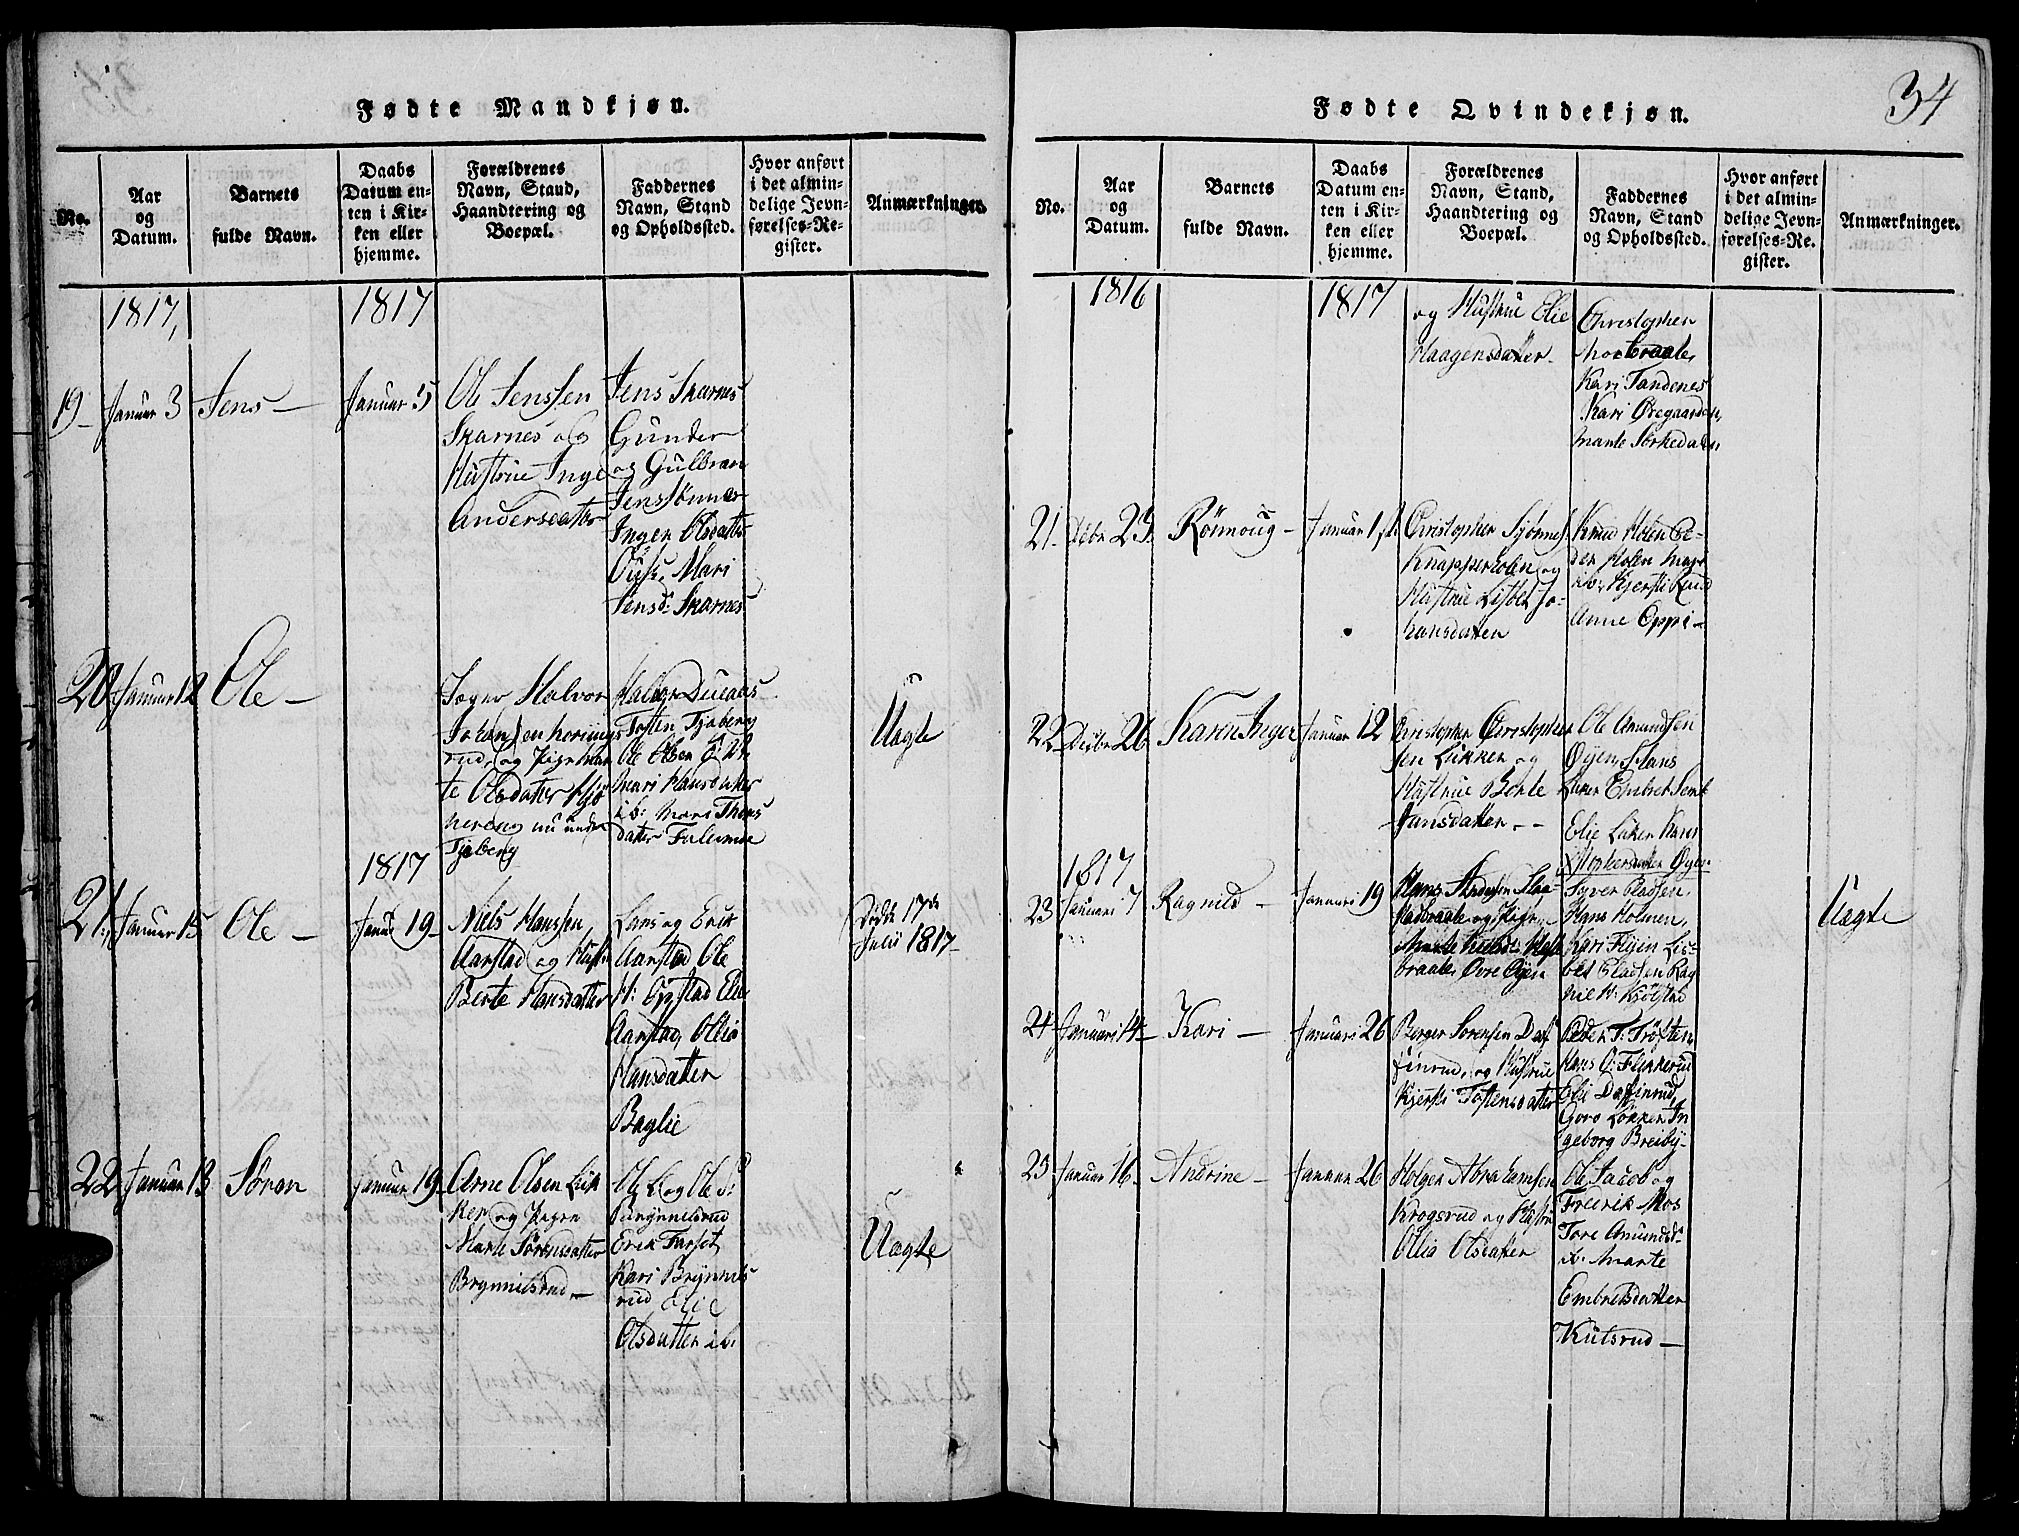 34
Fødte Mandkjøn.
No.
Aar
og
Datum.
Barnets
fulde Navn.
Daabs
Datum en-
ten i Kir-
ken eller
hjemme.
Forældrenes
Navn, Stand,
Haandtering og
Boepæl.
Faddernes
Navn, Stand
og Opholdssted.
Hvor anført
i det almin-
delige Jevn-
førelses-Re-
gister.
Anmærkninger.
1817,
1817
19-
Januar 3
Jens-
Januar 5
Ole Jenssen
Skarnes og
Hustrue Inge
Andersdatter
Jens Skarnes
Gunder
og Gulbran
Jenssönner
Ingen Olsdatter
Mari
Jensd: Skarnes
20
Januar 12
Ole-
Halvor
rud, og Pige Mar
te Olsdatter
nu under
Tjeberg
Tosten Tjeberg
Ole Olsen
Mari Hansdatter
ib: Mari Thors
datter
Uægte
1817
21
Januar 15
Ole-
Januar 19-
Niels Hanssen
Aarstad og Hustru
Berte Hansdatter
Lars og Erik
Aarstad Ole
H: Opstad Elie
Aarstad, Ollia
Hansdatter
Baglie
Döde 17de
Julii 1817-
22
Januar 13
Sören
Januar 19-
Arne Olsen Luk
ken og Pigen
Marte Sörensdatter
Brynnilsrud-
Ole L: og Ole S:
Brynnelsrud
Erik Farset
Kari Brynnils
rud Elie
Olsdatter ib:
Uægte
Fødte Qvindekjøn.
No.
Aar
og
Datum.
Barnets
fulde Navn.
Daabs
Datum en-
ten i Kir-
ken eller
hjemme.
Forældrenes
Navn, Stand,
Haandtering og
Boepæl.
Faddernes
Navn, Stand
og Opholdssted.
Hvor anført
i det almin-
delige Jevn-
førelses-Re-
gister.
Anmærkninger.
1816
1817
og Hustrue Elie
Haagensdatter-
Christopher
Morbraaten
Kari Tandenes
Kari Öregaarden,
Marte Sörkedalen
21-
Decbr 23.
Rönnoug-
Januar 1ste
Christopher
Knapperholen og
Hustrue Lisbet Jo-
hansdatter
Knud Holen Pe-
der Holen Mari
ib: Kjersti Rud
Anne Oppi-
22
Decbr 26
Karen Inger
Januar 12
Christopher Christopher
sen Lukken og
Hustrue Berte
Jansdatter--
Ole Amundsen
Öyen Hans
Luken Embret
Elie Luken Kari
Christophersdatter Öyen
1817
23
Januari 7
Ragnild-
Januari 19
Hans Andersen
og Pigen
Marte
braaten Övre Öyen
Syver Pladsen
Hans Holmen,
Kari Flyen Lis-
bet Pladsen Rag
nil H: Kjölstad
Uægte
24
Januari 14-
Kari-
Januari 26
Berger Sorensen Daf
finrud, og Hustrue
Kjersti Tostensdatter
Peder T: Tröften
Hans O: Flikkerud
Elie Daffinrud,
Goro Lökken In
geborg Breiby-
25
Januar 16-
Andrine-
Januar 26
Holger Abrahamsen
Krogsrud og Hustru
Ollia Olsdatter
Ole Jacob og
Frederik Mos
Tore Amundsd:
ib: Marte
Embretsdatter
Kutsrud-